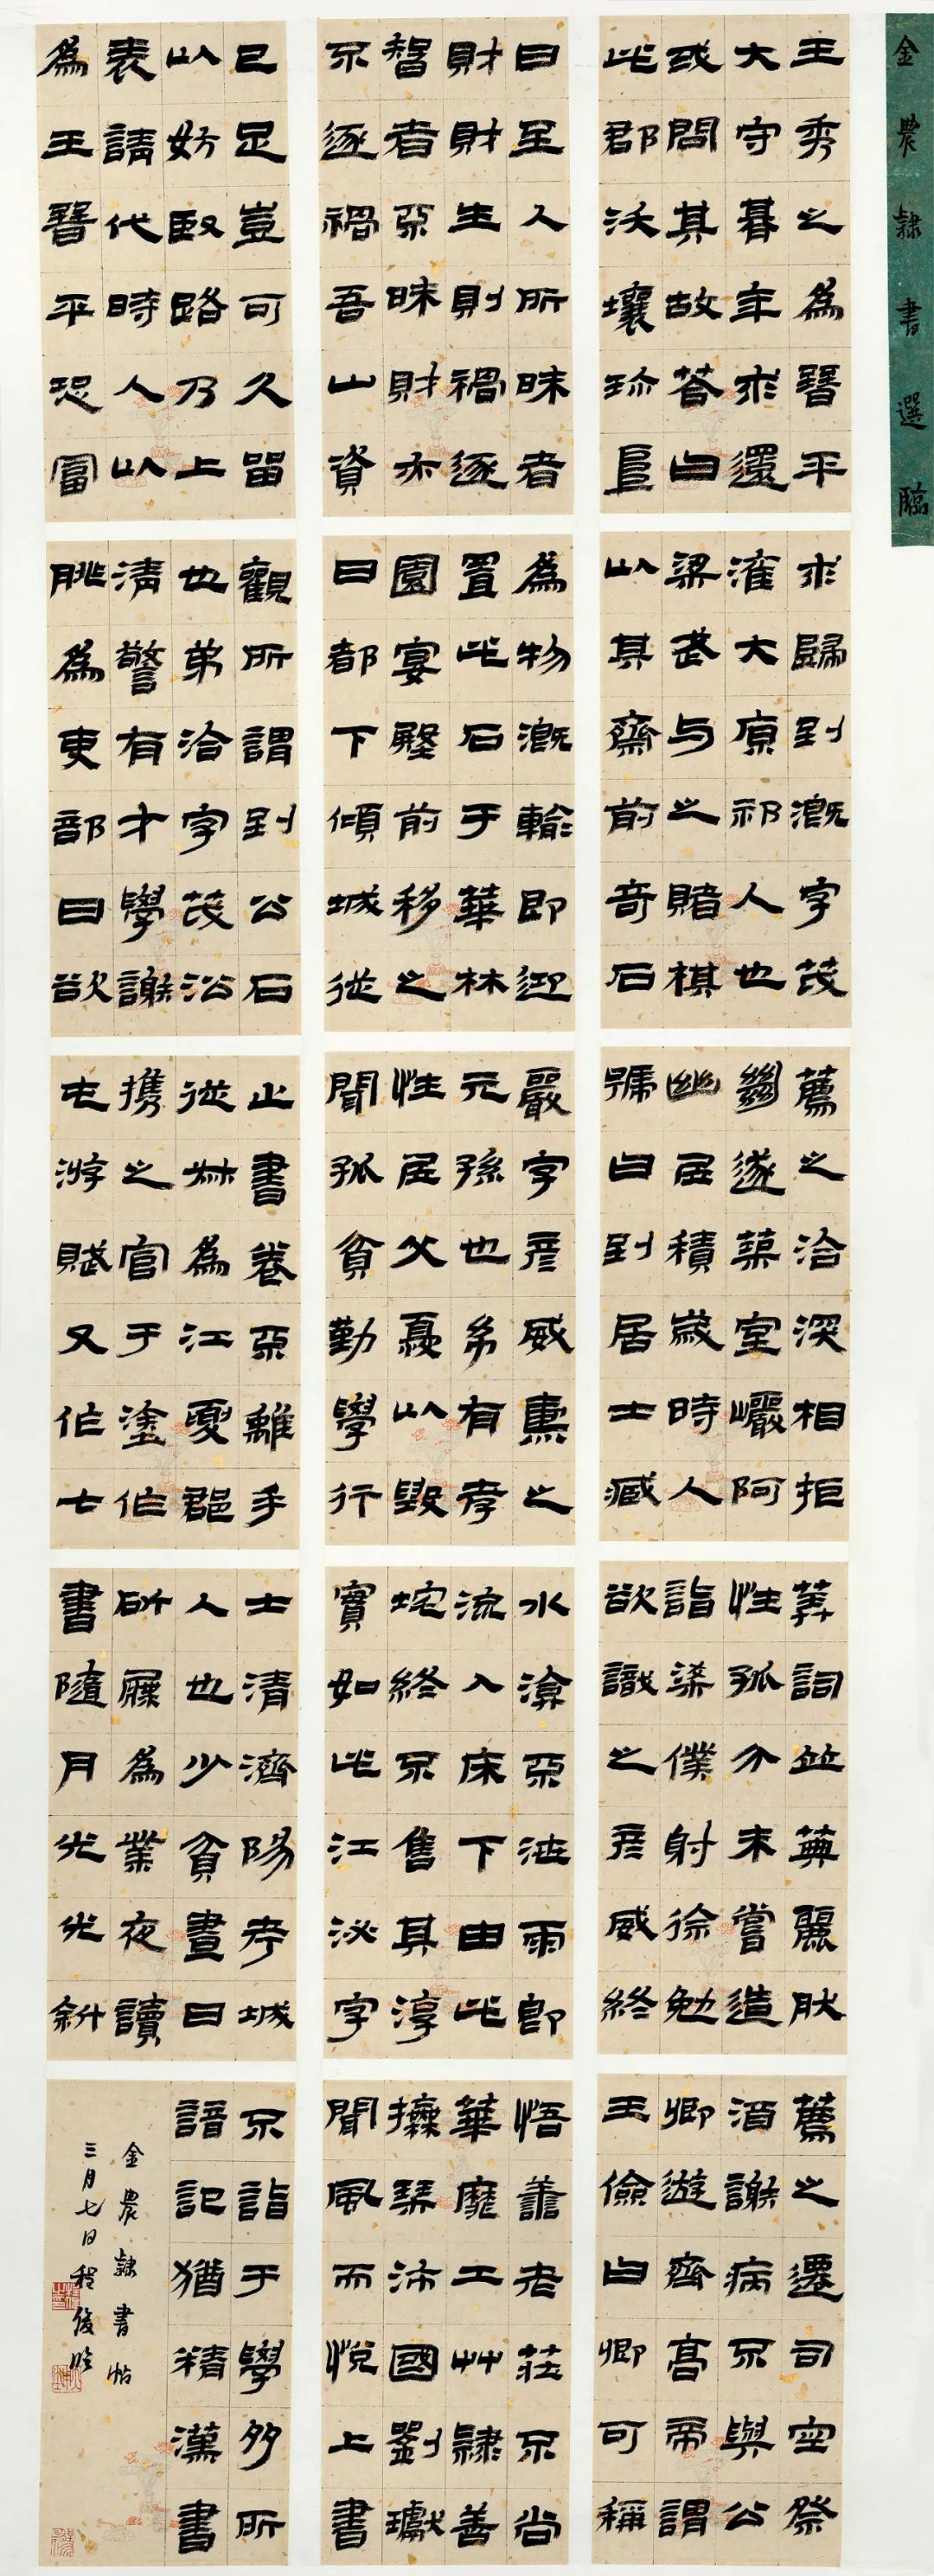 金農隸書選臨
王秀之為晉平
大守朞年求還
或問其故荅曰
此郡沃壤珍阜
日至人所昧者
財財生則禍逐
智者不昧財亦
不逐禍吾山資
已足豈可久留
以妨賢路乃上
表請代時人以
為王晉平恐富
求歸到溉字茂
灌大原祁人也
梁武与之賭棋
以其齋前奇石
為物溉輸即迎
置此石于華林
園宴殿前移之
日都下傾城從
觀所謂到公石
也弟洽字茂㳂
清警有才學謝
朓為吏部曰欲
薦之洽深相拒
遂築室巖阿
幽居積歲時人
號曰到居士臧
嚴字彥威燾之
元孫也幼有孝
性居父憂以毀
聞孤貧勤學行
止書卷不離手
從叔為江夏郡
攜之官于塗作
屯游賦又作七
筭詞並典麗肰
性孤介未嘗造
詣梁僕射徐勉
欲識之彥威終
不詣于學多所
諳記猶精漢書
水不雨郎
流入床下由此
宅終不售其淳
實如此江泌字
士清濟陽考城
人也少貧晝日
斫屧為業夜讀
書隨月光光斜
薦之遷司空祭
酒謝病不與公
卿遊齊高帝謂
王儉曰卿可稱
悟善老莊不尚
華靡工艸隸善
琴沛國劉瓛
聞風而悅上書
金農隸書帖
三月七日程俊臨